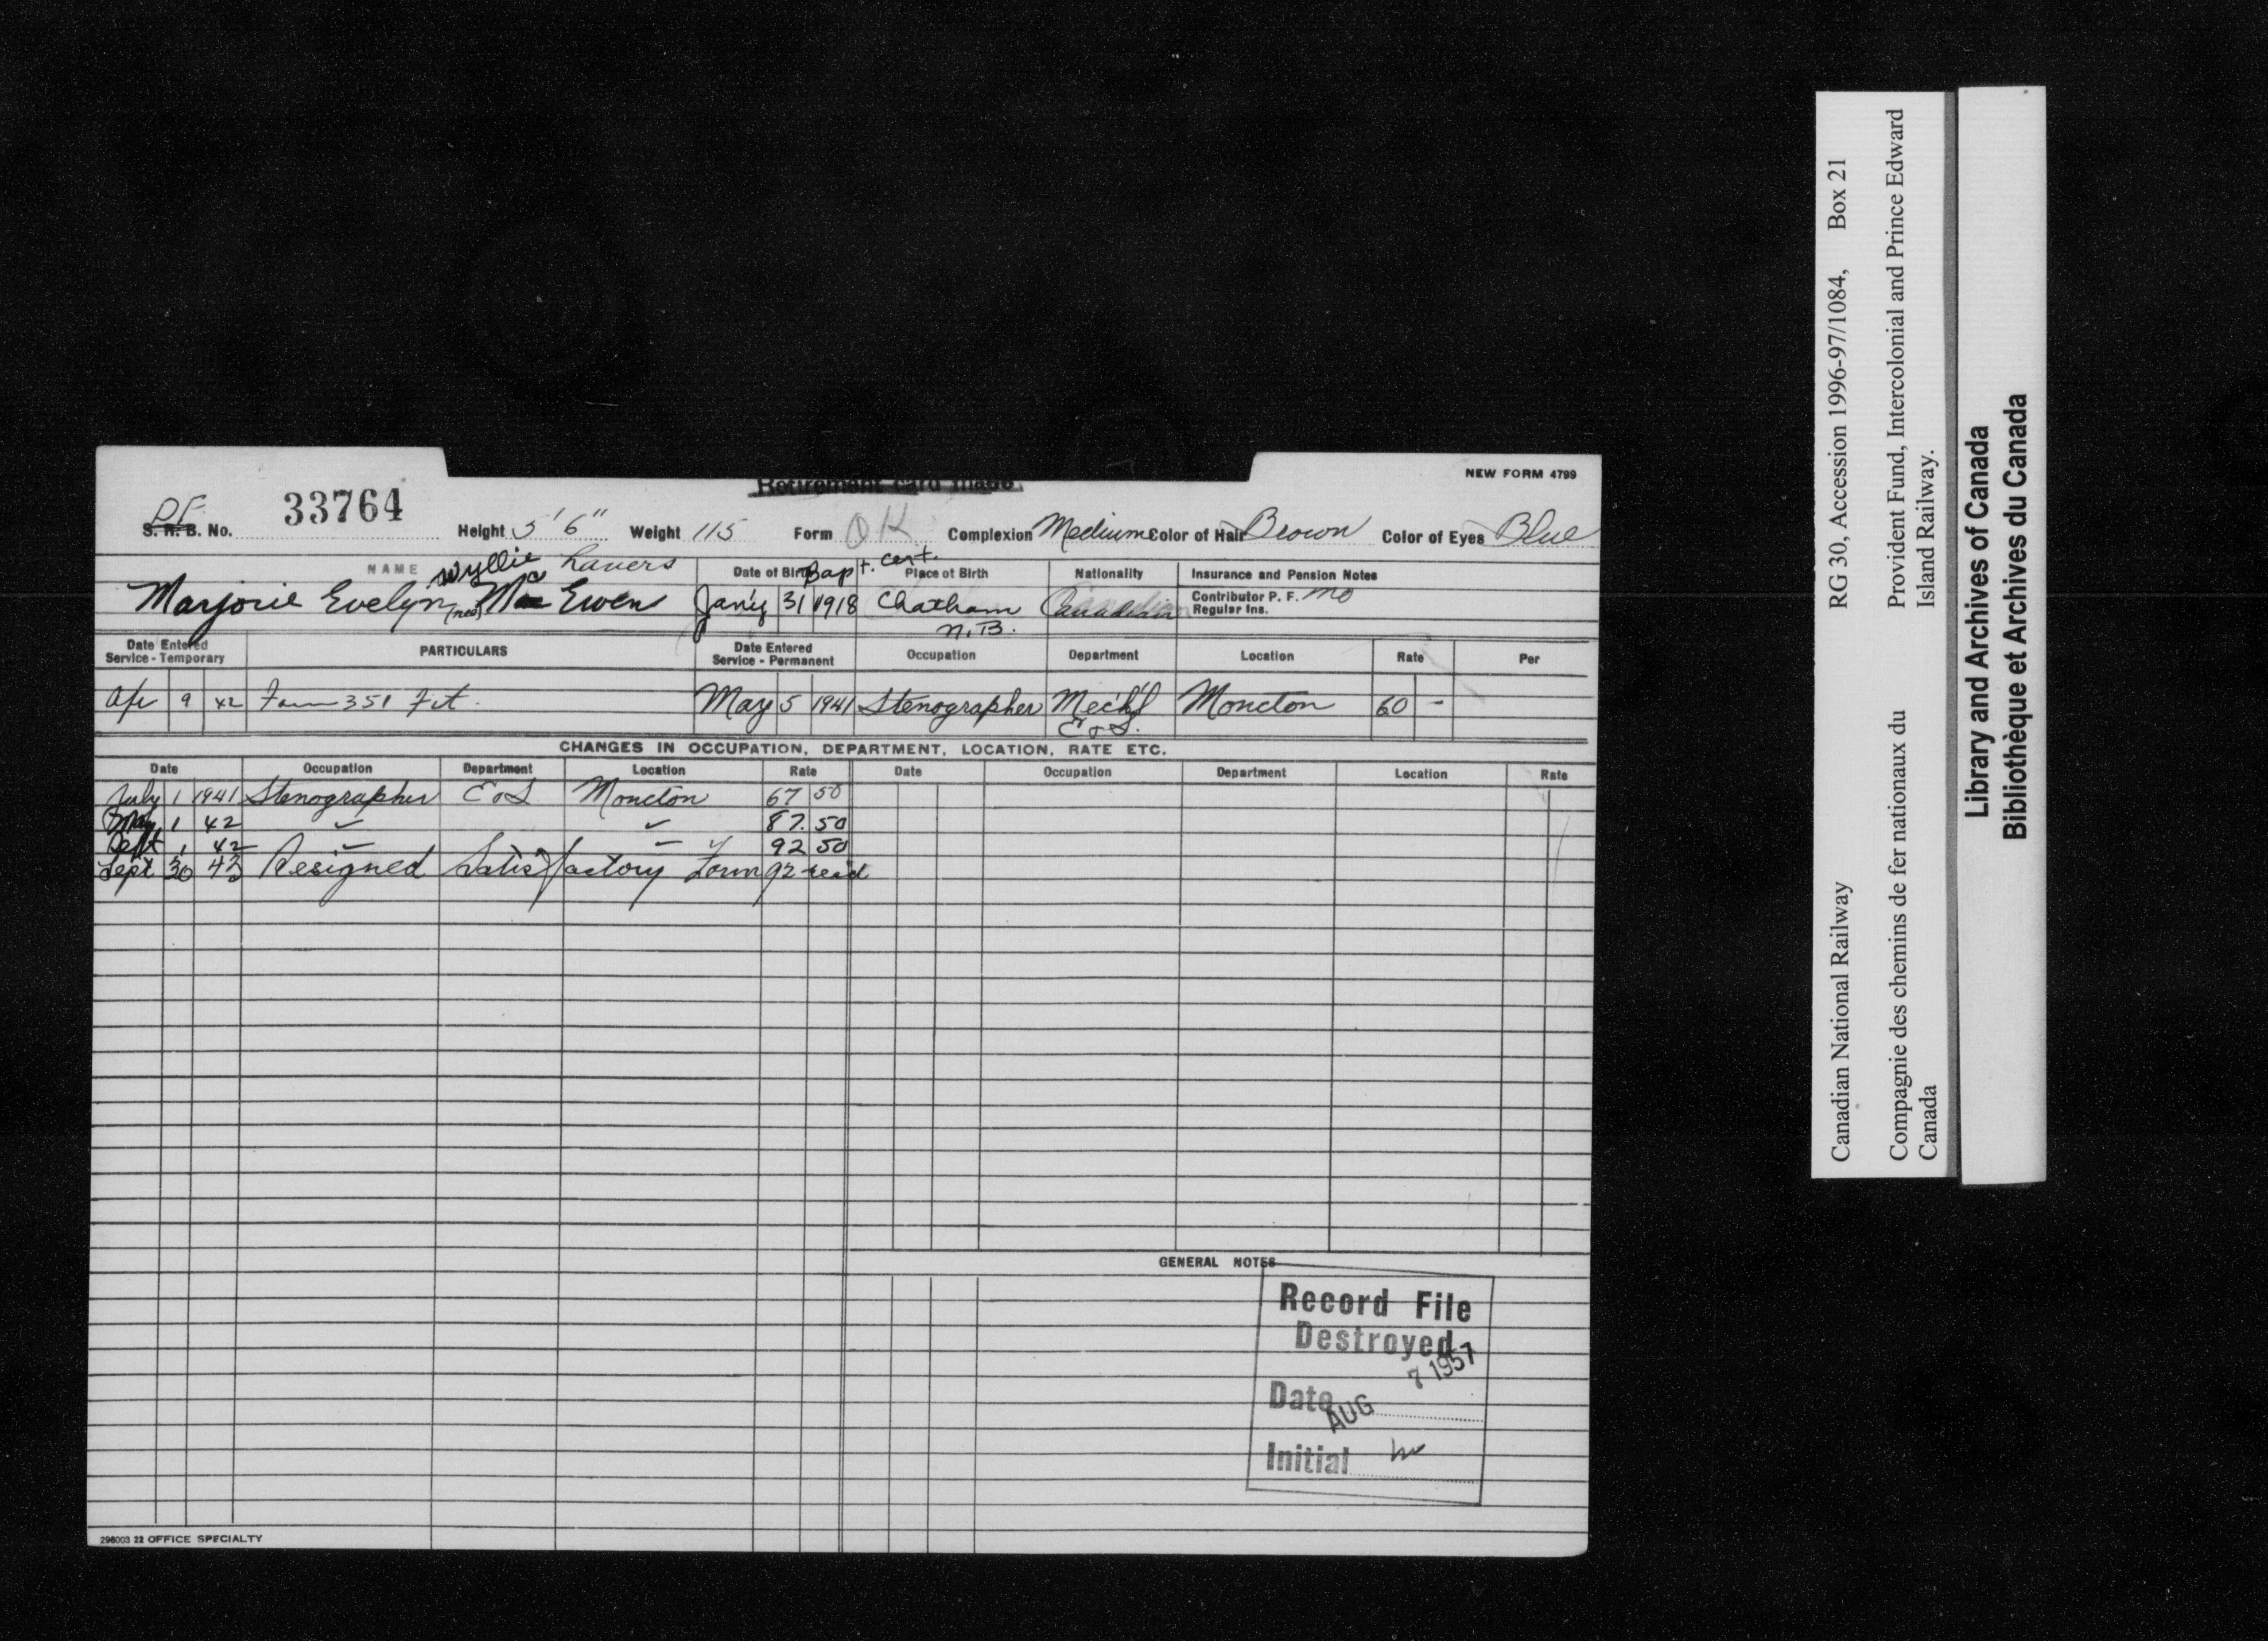 NEW FORM 4799
Retirement card made.
P.F.
S. R. B. No. 33764 Height 5' 6" Weight 115 Form OK Complexion Medium Color of Hair Brown Color of Eyes Blue
NAME Wyllie Lavers Date of Birth Bapt. cert. Place of Birth Nationality Insurance and Pension Notes
Marjorie Evelyn (nee) MacEwen Jan'y 31 1918 Chatham N.B. Canadian Contributor P. F. no
Regular Ins.
Date Entered Service - Temporary PARTICULARS Date Entered Service - Permanent Occupation Department Location Rate Per
Apr 9 42 Form 351 Fit. May 5 1941 Stenographer Mech'l E & S. Moncton 60 -
CHANGES IN OCCUPATION, DEPARTMENT, LOCATION, RATE ETC.
Date Occupation Department Location Rate Date Occupation Department Location Rate
July 1 1941 Stenographer E & S Moncton 67 50
May 1 42 ✓ ✓ 87.50
Sept 1 42 ✓ ✓ 92 50
Sept 30 43 Resigned Satisfactory Form 92 rec'd
GENERAL NOTES
Record File
Destroyed
Date AUG 7 1957
Initial
296003 22 OFFICE SPECIALTY
Canadian National Railway RG 30, Accession 1996-97/1084, Box 21
Compagnie des chemins de fer nationaux du Canada
Provident Fund, Intercolonial and Prince Edward Island Railway.
Library and Archives of Canada
Bibliothèque et Archives du Canada